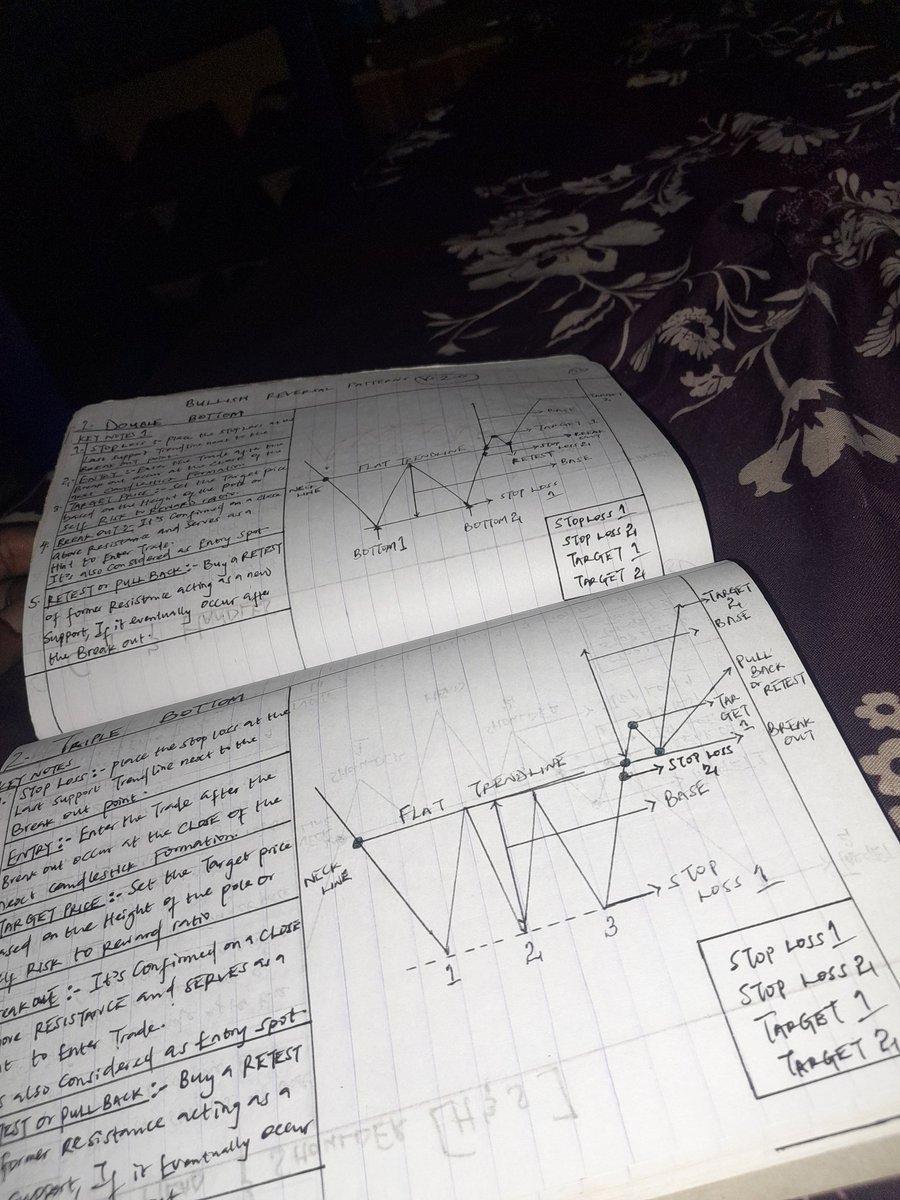 BULLISH REVERSAL PATTERNS
DOUBLE BOTTOM
KEY NOTES 1
1. STOP LOSS :- Place the Stop Loss at the
Last support Trendline next to the
Break out point.
2. ENTRY :- Enter the Trade after the
Break out occur at the close of the
next candlestick formation
3. TARGET PRICE :- Set the Target price
based on the Height of the pole or
self Risk to Reward ratio.
4. BREAK OUT :- It's Confirmed on a close
above Resistance and Serves as a
Hint to Enter Trade.
It's also Considered as Entry spot
5. RETEST or PULL BACK :- Buy a RETEST
of former Resistance acting as a new
support, If it eventually occur after
the Break out.
NECK LINE
FLAT TRENDLINE
BOTTOM 1
BOTTOM 2
STOP LOSS 1
BASE
TARGET 1
BREAK OUT
STOP LOSS 2
RETEST
BASE
TARGET 2
STOP LOSS 1
STOP LOSS 2
TARGET 1
TARGET 2
2. TRIPLE BOTTOM
KEY NOTES
STOP LOSS :- place the Stop Loss at the
Last support Trendline next to the
Break out point.
ENTRY :- Enter the Trade after the
Break out occur at the CLOSE of the
next candlestick Formation.
TARGET PRICE :- Set the Target price
based on the Height of the pole or
self Risk to Reward ratio
BREAK OUT :- It's Confirmed on a CLOSE
above RESISTANCE and SERVES as a
Hint to Enter Trade.
also Considered as Entry spot.
RETEST or PULL BACK :- Buy a RETEST
former Resistance acting as a
support, If it Eventually occur
NECK LINE
FLAT TRENDLINE
1
2
3
STOP LOSS 1
BASE
STOP LOSS 2
BREAK OUT
TARGET 1
PULL BACK or RETEST
BASE
TARGET 2
STOP LOSS 1
STOP LOSS 2
TARGET 1
TARGET 2